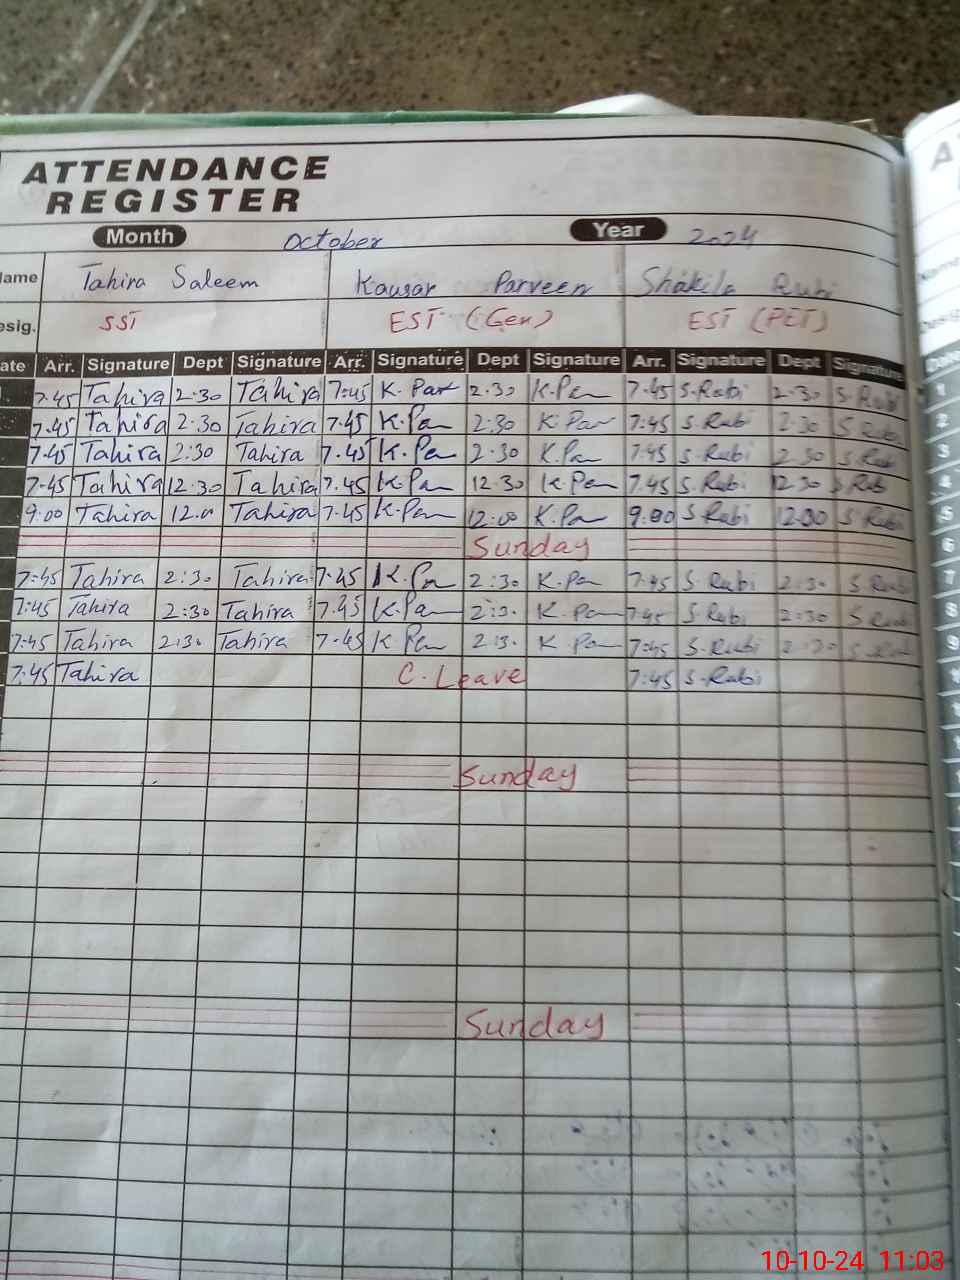 ATTENDANCE
REGISTER
Month October Year 2024
Name Tahira Saleem Kausar Parveen Shakila Rubi
Desig. SST EST (Gen) EST (PET)
ate Arr. Signature Dept Signature Arr. Signature Dept Signature Arr. Signature Dept Signature
7.45 Tahira 2.30 Tahira 7:45 K. Par 2.30 K.Pa 7.45 S.Rubi 2.30 S.Rubi
7.45 Tahira 2.30 Tahira 7.45 K.Pa 2:30 K.Par 7:45 S.Rubi 2.30 S.Rubi
7.45 Tahira 2:30 Tahira 7.45 K.Pa 2.30 K.Pa 7.45 S.Rubi 2.30 S.Rub
7.45 Tahira 12.30 Tahira 7.45 K.Pa 12.30 K.Pa 7.45 S.Rubi 12.30 S Rub
9.00 Tahira 12.0 Tahira 7.45 K.Pa 12:00 K.Pa 9.00 S.Rubi 12.00 S Rubi
Sunday
7:45 Tahira 2:30 Tahira 7.45 K.Pa 2:30 K.Pa 7.45 S.Rubi 2:30 S Rubi
7:45 Tahira 2:30 Tahira 7.45 K.Pa 2:3. K.Pa 7.45 S.Rubi 2:30 S Rubi
7:45 Tahira 2:30 Tahira 7.45 K Pa 2.3. K.Pa 7:45 S.Rubi 2:30 S.Rubi
7:45 Tahira C. Leave 7:45 S.Rubi
Sunday
Sunday
1
2
3
4
5
6
7
8
9
10-10-24 11:03